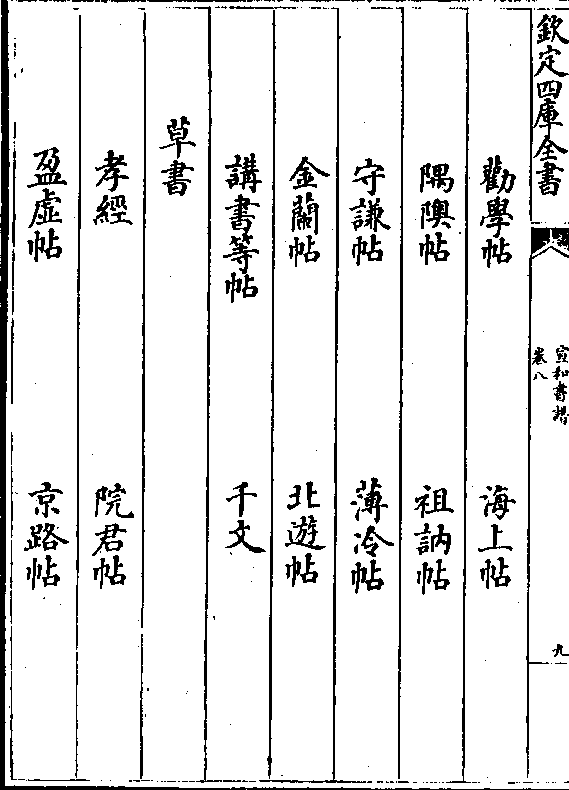 欽定四庫全書
宣和書譜
卷八
九
勸學帖 海上帖
隅隩帖 祖訥帖
守謙帖 薄冷帖
金蘭帖 北遊帖
講書等帖 千文
草書
孝經 院君帖
盈虛帖 京路帖